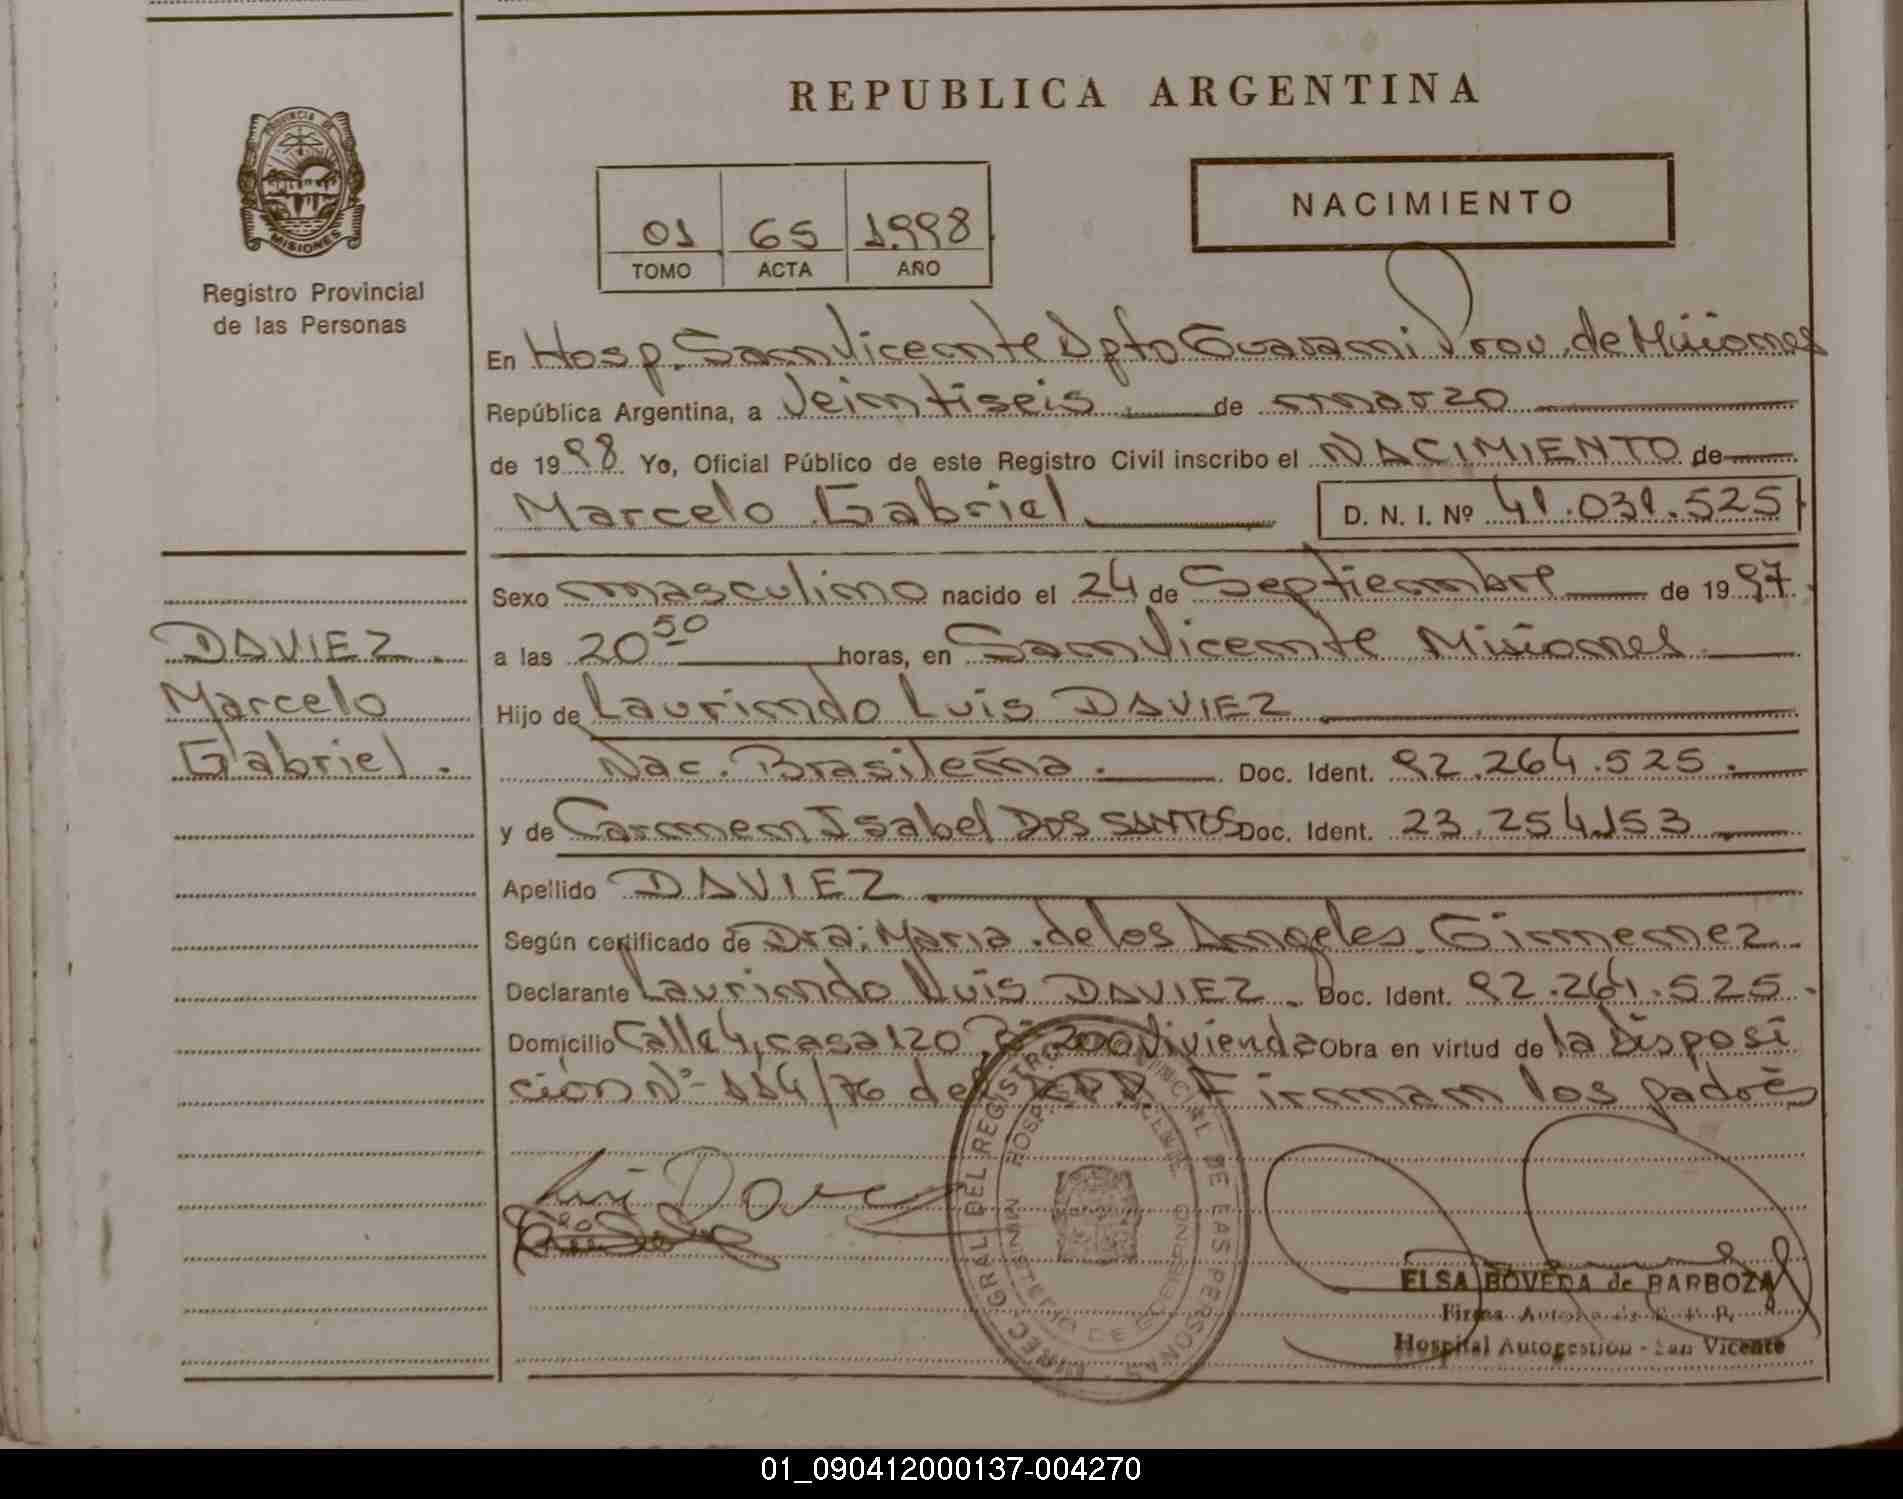 REPUBLICA ARGENTINA
PROVINCIA DE
MISIONES
Registro Provincial
de las Personas
01 65 1998
TOMO ACTA AÑO
NACIMIENTO
En Hosp. San Vicente Dpto Guarani Prov. de Misiones
República Argentina, a Veintiseis de marzo
de 1998 Yo, Oficial Público de este Registro Civil inscribo el NACIMIENTO de
Marcelo Gabriel D. N. I. Nº 41.031.525
Sexo masculino nacido el 24 de Septiembre de 1997
a las 20 50 horas, en San Vicente Misiones
Hijo de Laurindo Luis DAVIEZ
Nac. Brasileña. Doc. Ident. 92.264.525.
y de Carmen Isabel DOS SANTOS Doc. Ident. 23.254.153
Apellido DAVIEZ
Según certificado de Dra: Maria de los Angeles Gimenez
Declarante Laurindo Luis DAVIEZ. Doc. Ident. 92.264.525.
Domicilio Calle 4, casa 120 Bº 200 Viviendas Obra en virtud de la Disposi
ción Nº 114/76 del Firman los padres
DAVIEZ.
Marcelo
Gabriel.
DIREC. GRAL. DEL REGISTRO PROVINCIAL DE LAS PERSONAS
MINISTERIO DE GOBIERNO
ELSA BOVEDA de BARBOZA
Hospital Autogestion - San Vicente
01_090412000137-004270